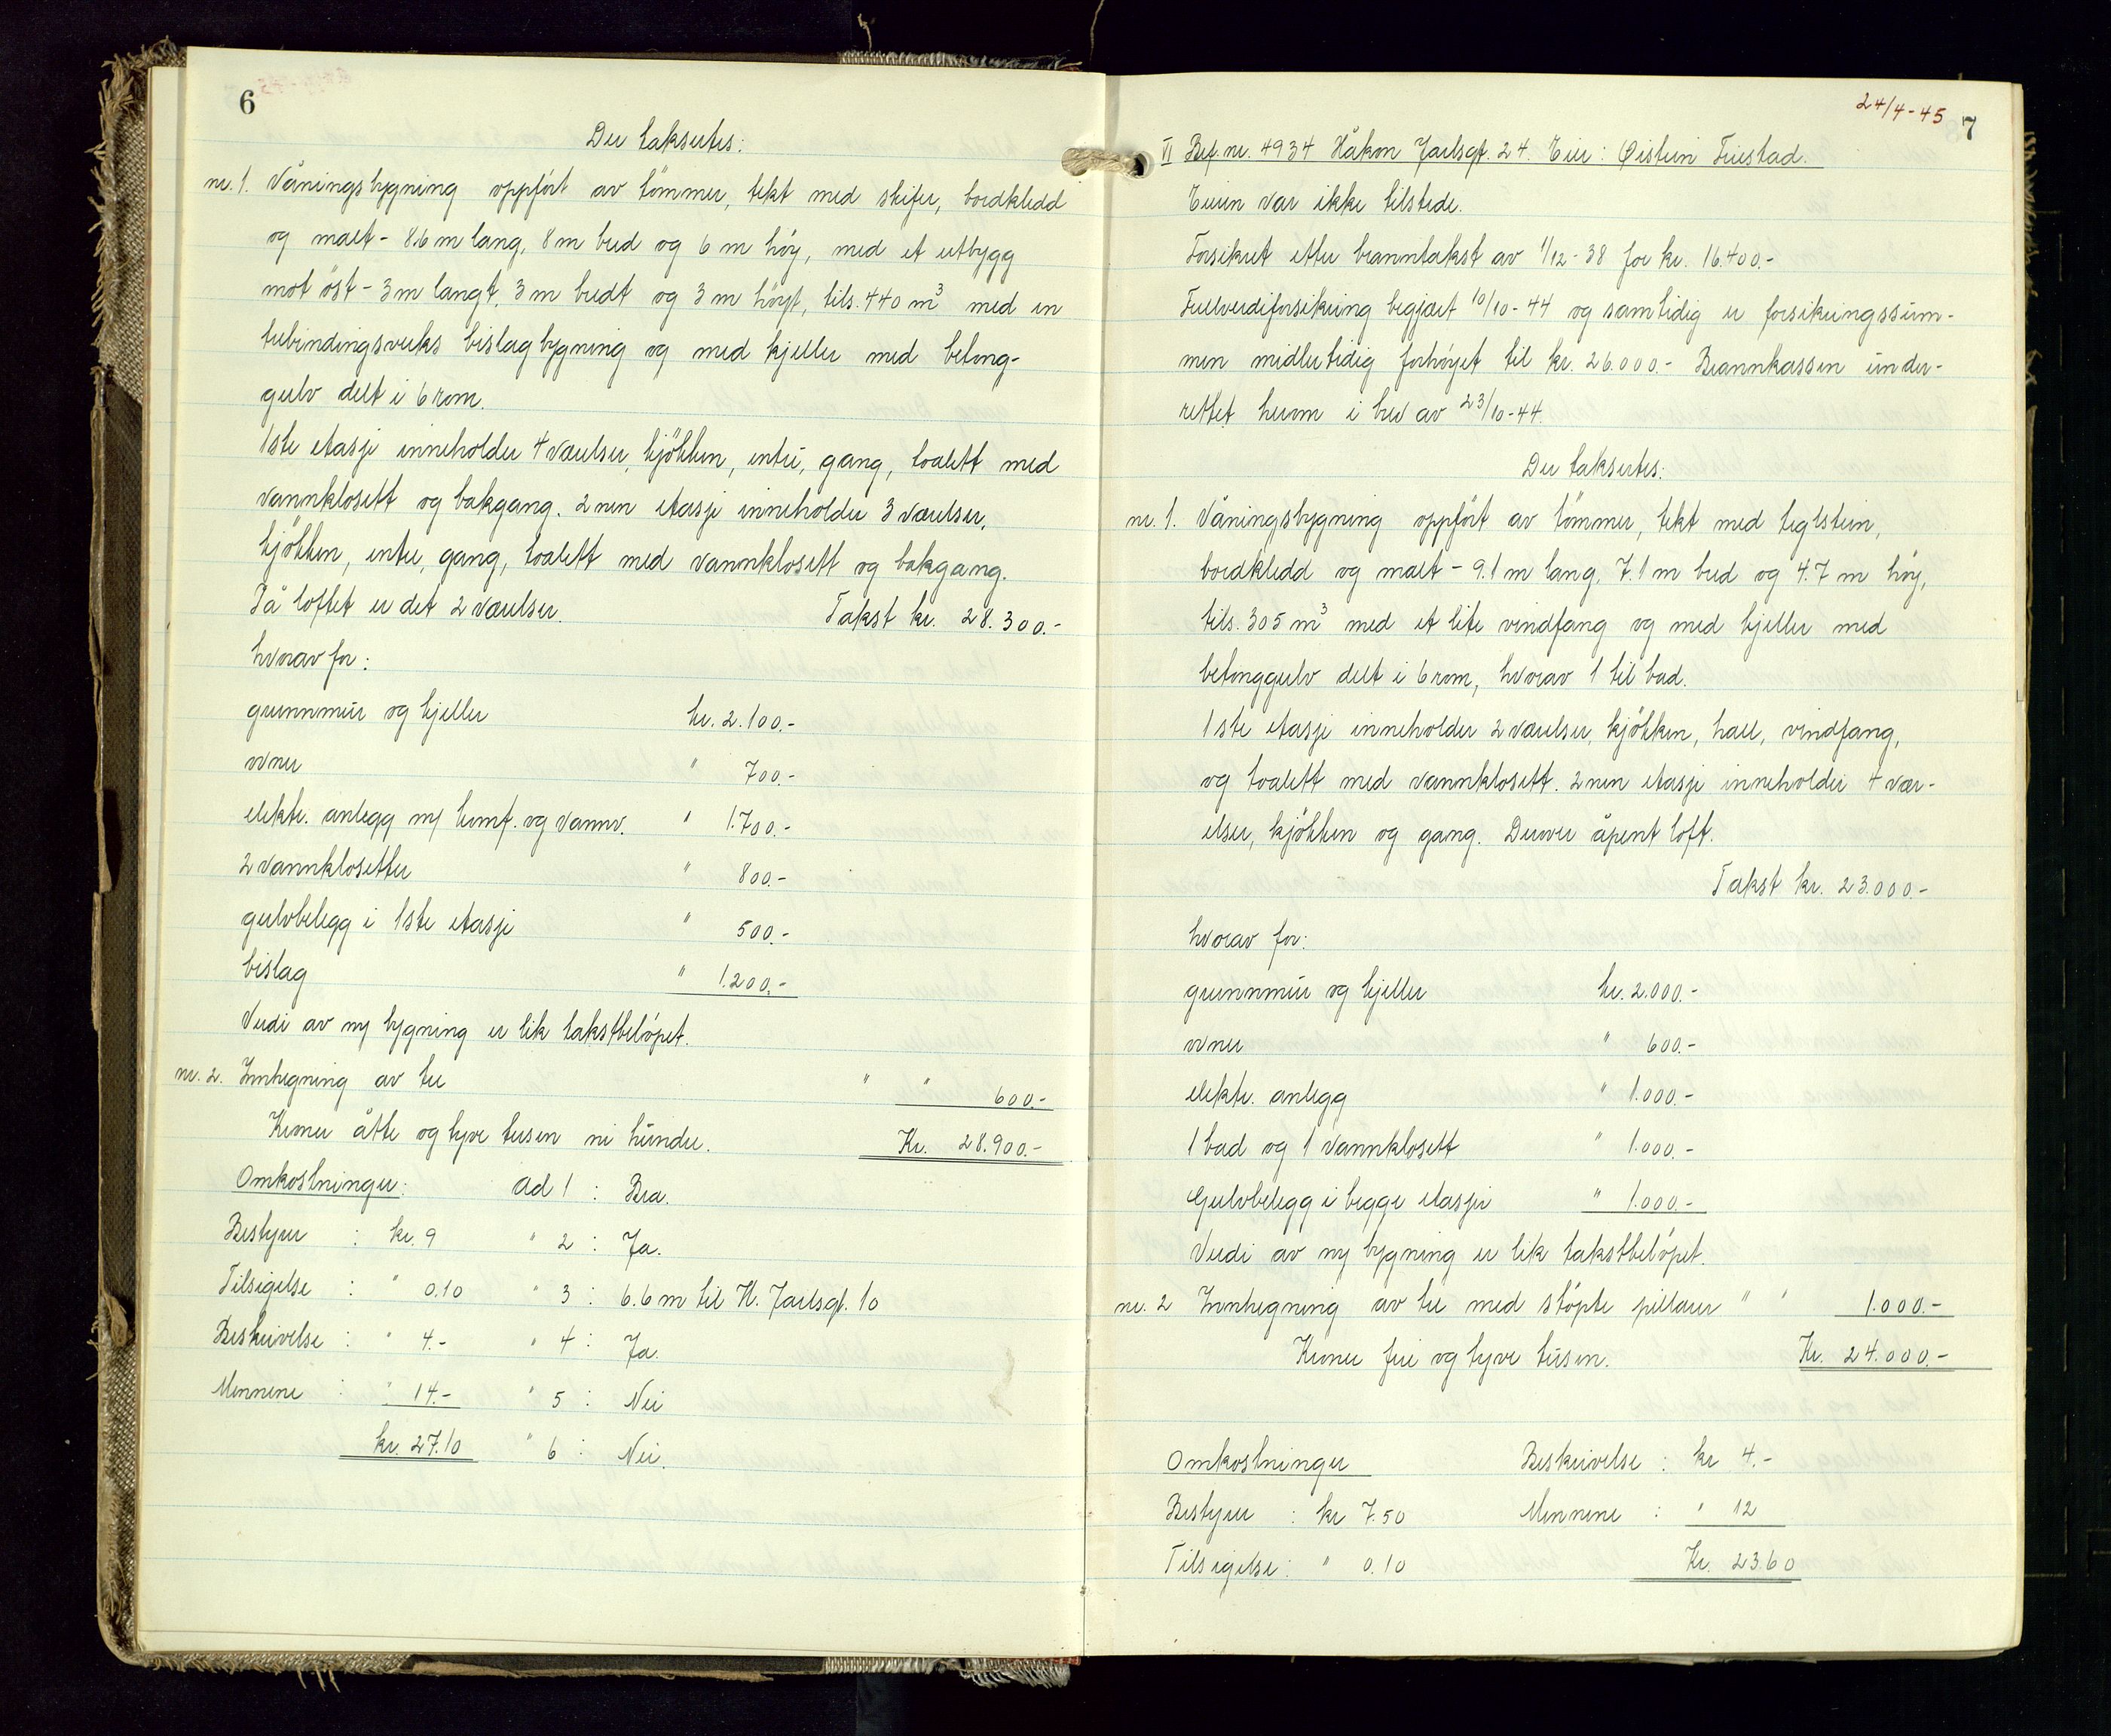 6
Der takseres:
nr. 1. Våningsbygning oppført av tømmer, tekt med skifer, bordkledd
og malt - 8.6 m lang, 8 m bred og 6 m høy, med et utbygg
mot øst - 3 m langt, 3 m bredt og 3 m høyt, tils. 440 m³ med en
trebindingsverks bislagbygning og med kjeller med betong-
gulv delt i 6 rom.
1ste etasje inneholder 4 værelser, kjøkken, entré, gang, toalett med
vannklosett og bakgang. 2nen etasje inneholder 3 værelser,
kjøkken, entre, gang, toalett med vannklosett og bakgang.
På loftet er det 2 værelser. Takst kr. 28.300.-
hvorav for:
grunnmur og kjeller kr. 2.100.-
ovner " 700.-
elektr. anlegg m/ komf. og vannv. " 1.700.-
2 vannklosetter " 800.-
gulvbelegg i 1ste etasje " 500.-
bislag " 1.200.-
Verdi av ny bygning er lik takstbeløpet.
nr. 2. Innhegning av tre " " 600.-
Kroner åtte og tyve tusen ni hundre. Kr. 28.900.-
Omkostninger: ad 1 : Bra.
Bestyrer : kr. 9 " 2 : Ja.
Tilsigelse : " 0.10 " 3 : 6.6 m til H. Jarlsgt. 10
Beskrivelse : " 4.- " 4 : Ja.
Mennene : " 14.- " 5 : Nei
kr. 27.10 " 6 : Nei.
24/4-45 7
VI Brf. nr. 4934 Håkon Jarlsgt. 24. Eier: Øistein Friestad.
Eieren var ikke tilstede.
Forsikret etter branntakst av 1/12-38 for kr. 16.400.-
Fullverdiforsikring begjært 10/10-44 og samtidig er forsikringssum-
men midlertidig forhøyet til kr. 26.000.- Brannkassen under-
rettet herom i brev av 23/10-44.
Der takseres:
nr. 1. Våningsbygning oppført av tømmer, tekt med teglstein,
bordkledd og malt - 9.1 m lang, 7.1 m bred og 4.7 m høy,
tils. 305 m³ med et lite vindfang og med kjeller med
betonggulv delt i 6 rom, hvorav 1 til bad.
1ste etasje inneholder 2 værelser, kjøkken, hall, vindfang,
og toalett med vannklosett. 2nen etasje inneholder 4 vær-
elser, kjøkken og gang. Derover åpent loft.
Takst kr. 23.000.-
hvorav for:
grunnmur og kjeller kr. 2.000.-
ovner " 600.-
elektr. anlegg " 1.000.-
1 bad og 1 vannklosett " 1.000.-
Gulvbelegg i begge etasjer " 1.000.-
Verdi av ny bygning er lik takstbeløpet.
nr. 2 Innhegning av tre med støpte pillarer " " 1.000.-
Kroner fire og tyve tusen. Kr. 24.000.-
Omkostninger Beskrivelse : kr 4.-
Bestyrer : kr 7.50 Mennene : " 12
Tilsigelse : " 0.10 Kr. 23.60